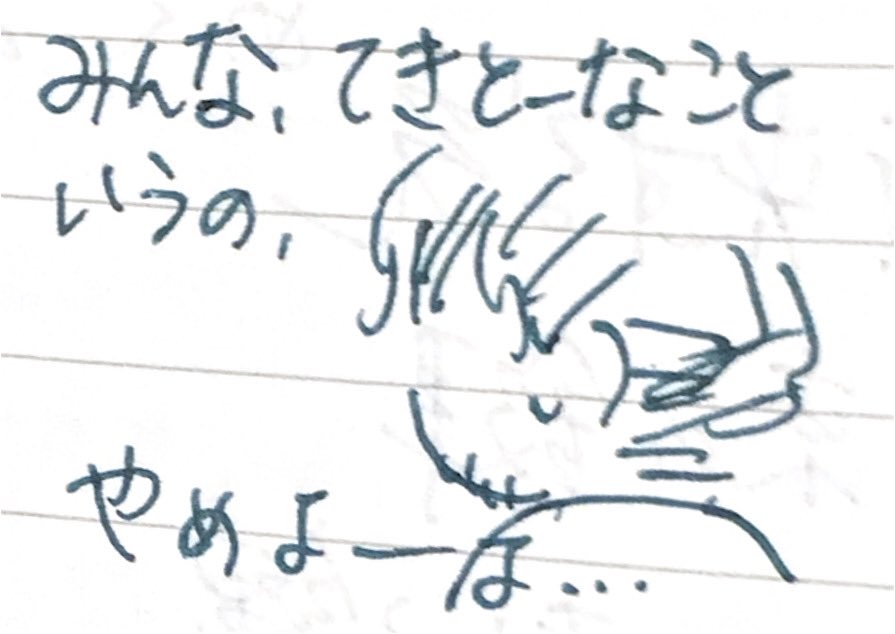 みんな、てきとーなこと
いうの、
やめよーよ…